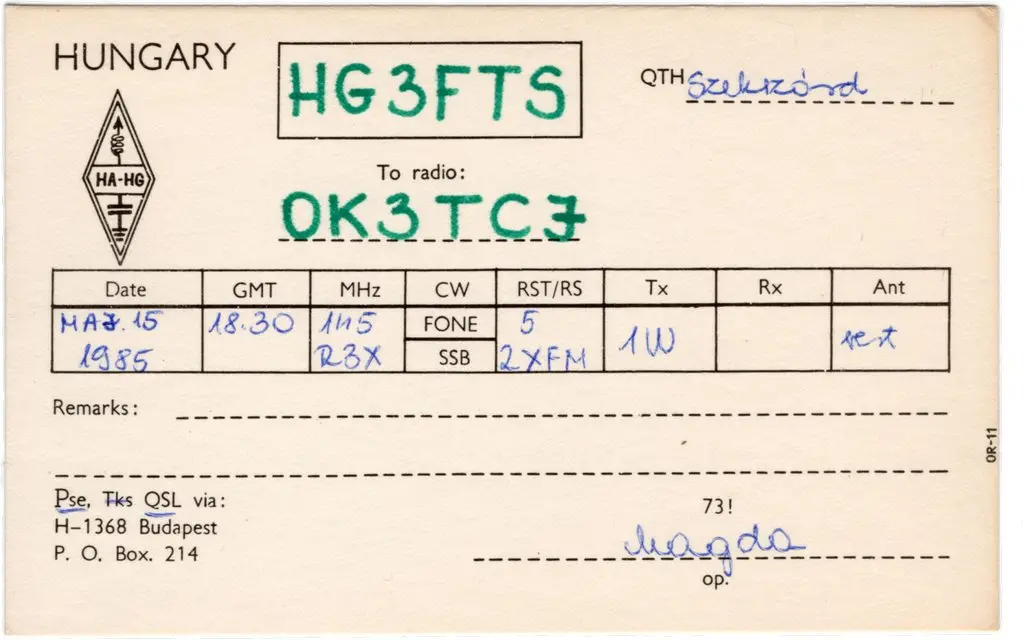 HUNGARY
HG3FTS
QTH Szekszárd
HA-HG
To radio:
OK3TCJ
Date GMT MHz CW RST/RS Tx Rx Ant
MAJ. 15 18.30 145 FONE 5 1W
1985 R3X SSB 2XFM
Remarks:
OR-11
Pse, Tks QSL via:
H-1368 Budapest
P. O. Box. 214
73!
Magda
op.